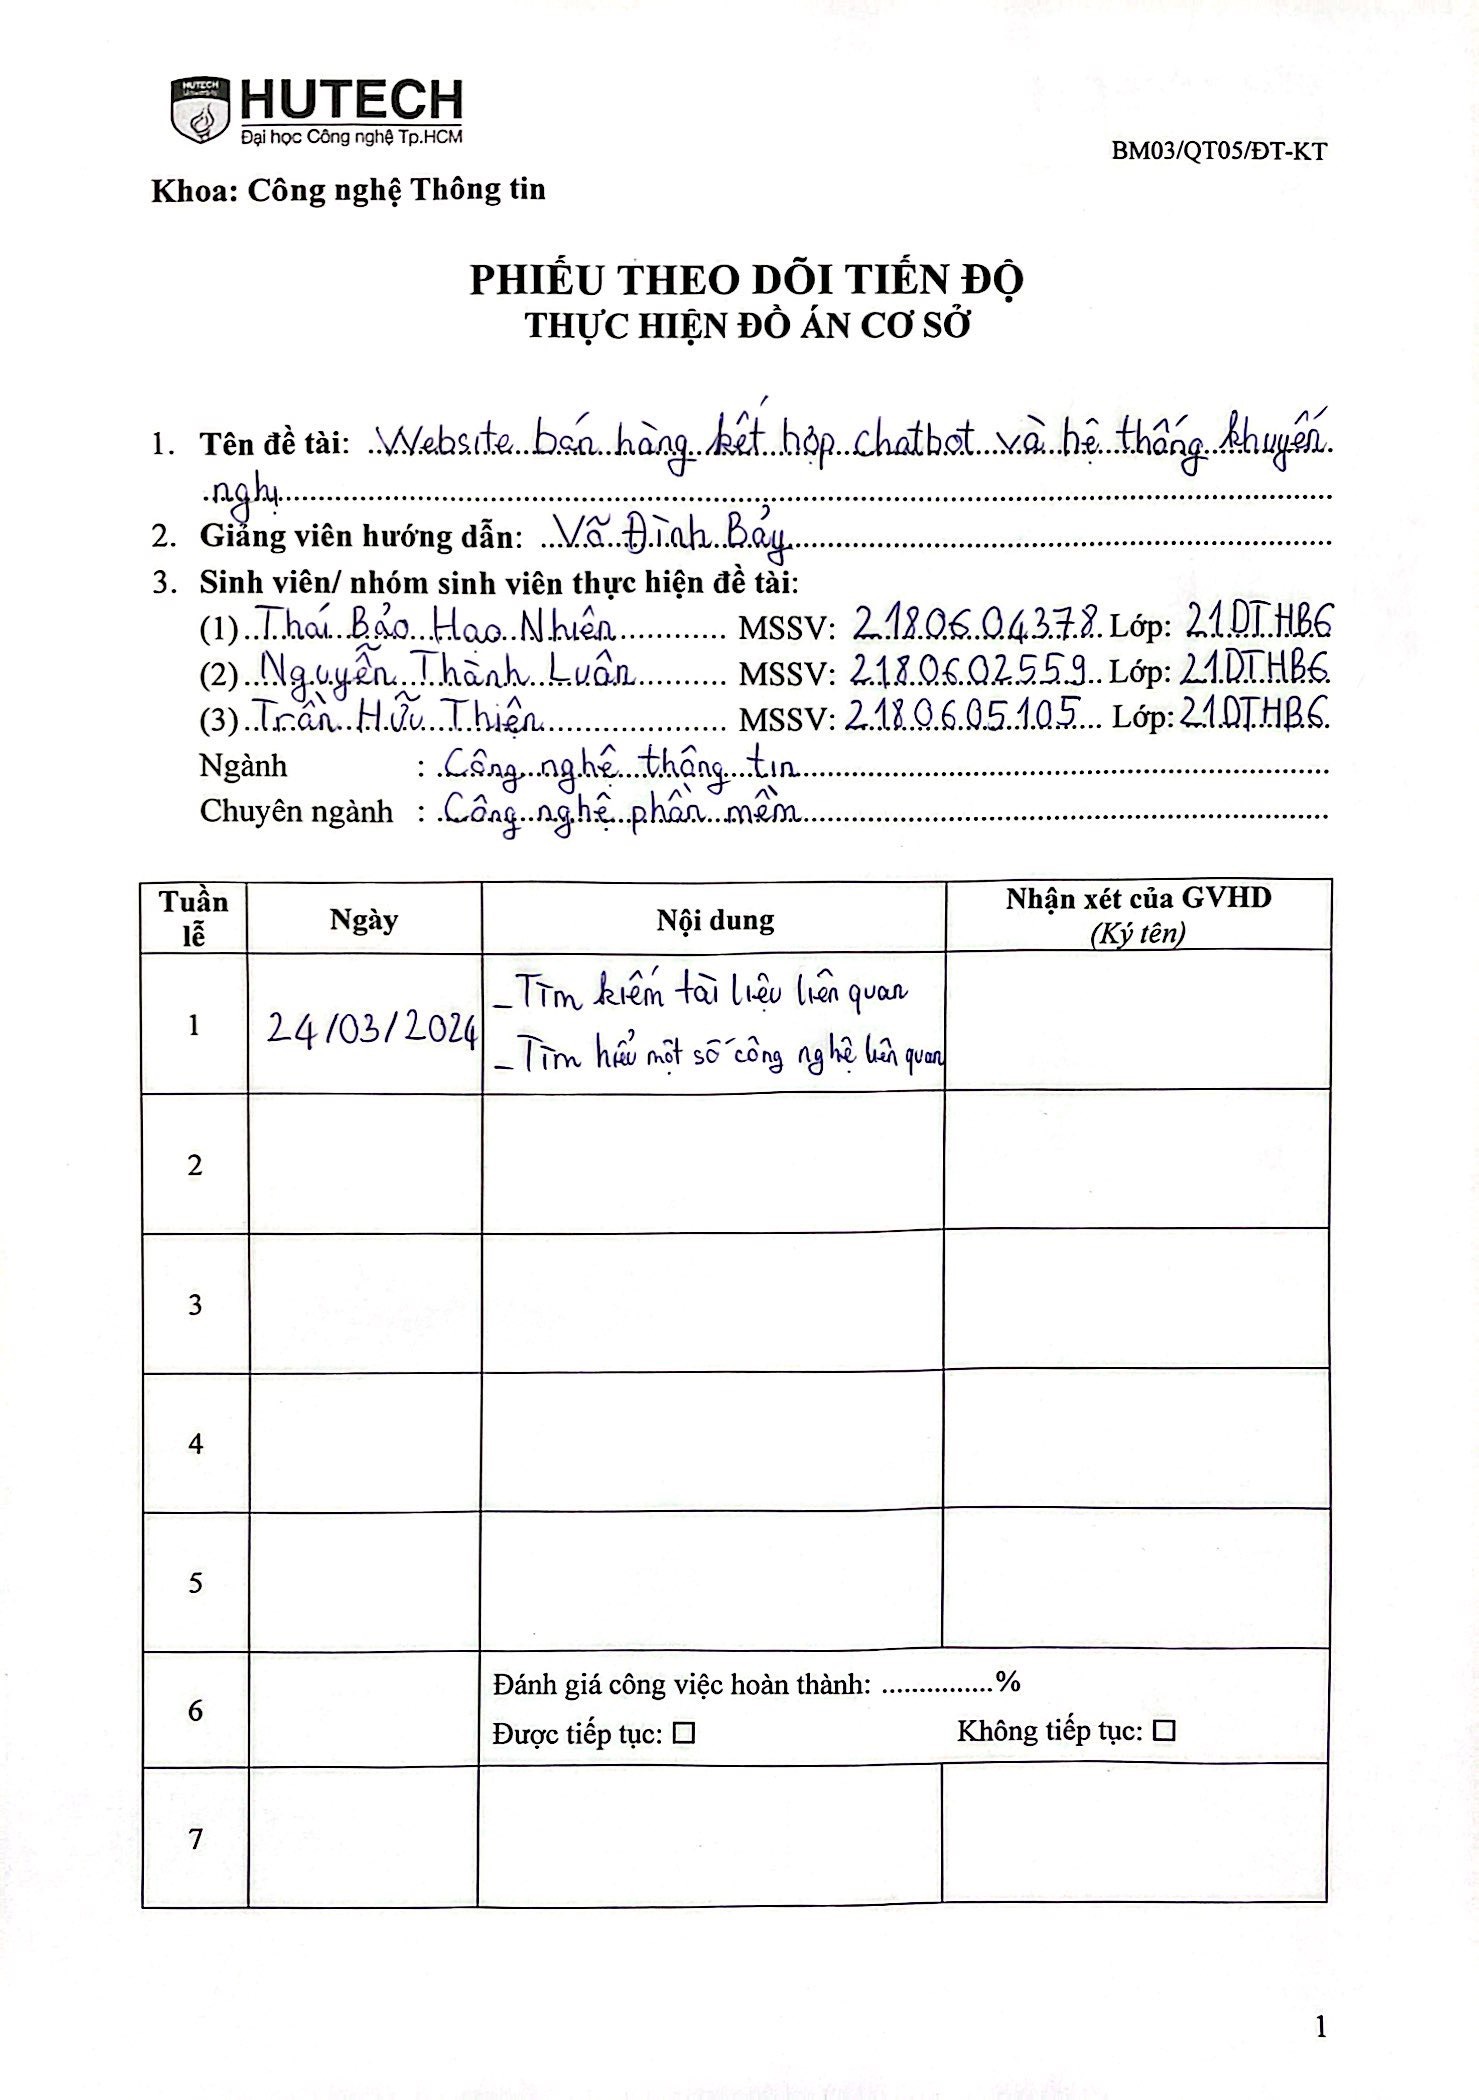 HUTECH
UNIVERSITY
HUTECH
Đại học Công nghệ Tp.HCM
BM03/QT05/ĐT-KT
Khoa: Công nghệ Thông tin
PHIẾU THEO DÕI TIẾN ĐỘ
THỰC HIỆN ĐỒ ÁN CƠ SỞ
1. Tên đề tài: Website bán hàng kết hợp chatbot và hệ thống khuyến
nghị
2. Giảng viên hướng dẫn: Võ Đình Bảy
3. Sinh viên/ nhóm sinh viên thực hiện đề tài:
(1) Thái Bảo Hạo Nhiên MSSV: 2180604378 Lớp: 21DTHB6
(2) Nguyễn Thành Luân MSSV: 2180602559 Lớp: 21DTHB6
(3) Trần Hữu Thiện MSSV: 2180605105 Lớp: 21DTHB6
Ngành : Công nghệ thông tin
Chuyên ngành : Công nghệ phần mềm
Tuần lễ Ngày Nội dung Nhận xét của GVHD
(Ký tên)
1 24/03/2024 - Tìm kiếm tài liệu liên quan
- Tìm hiểu một số công nghệ liên quan
2
3
4
5
6 Đánh giá công việc hoàn thành: ...............%
Được tiếp tục: ☐ Không tiếp tục: ☐
7
1